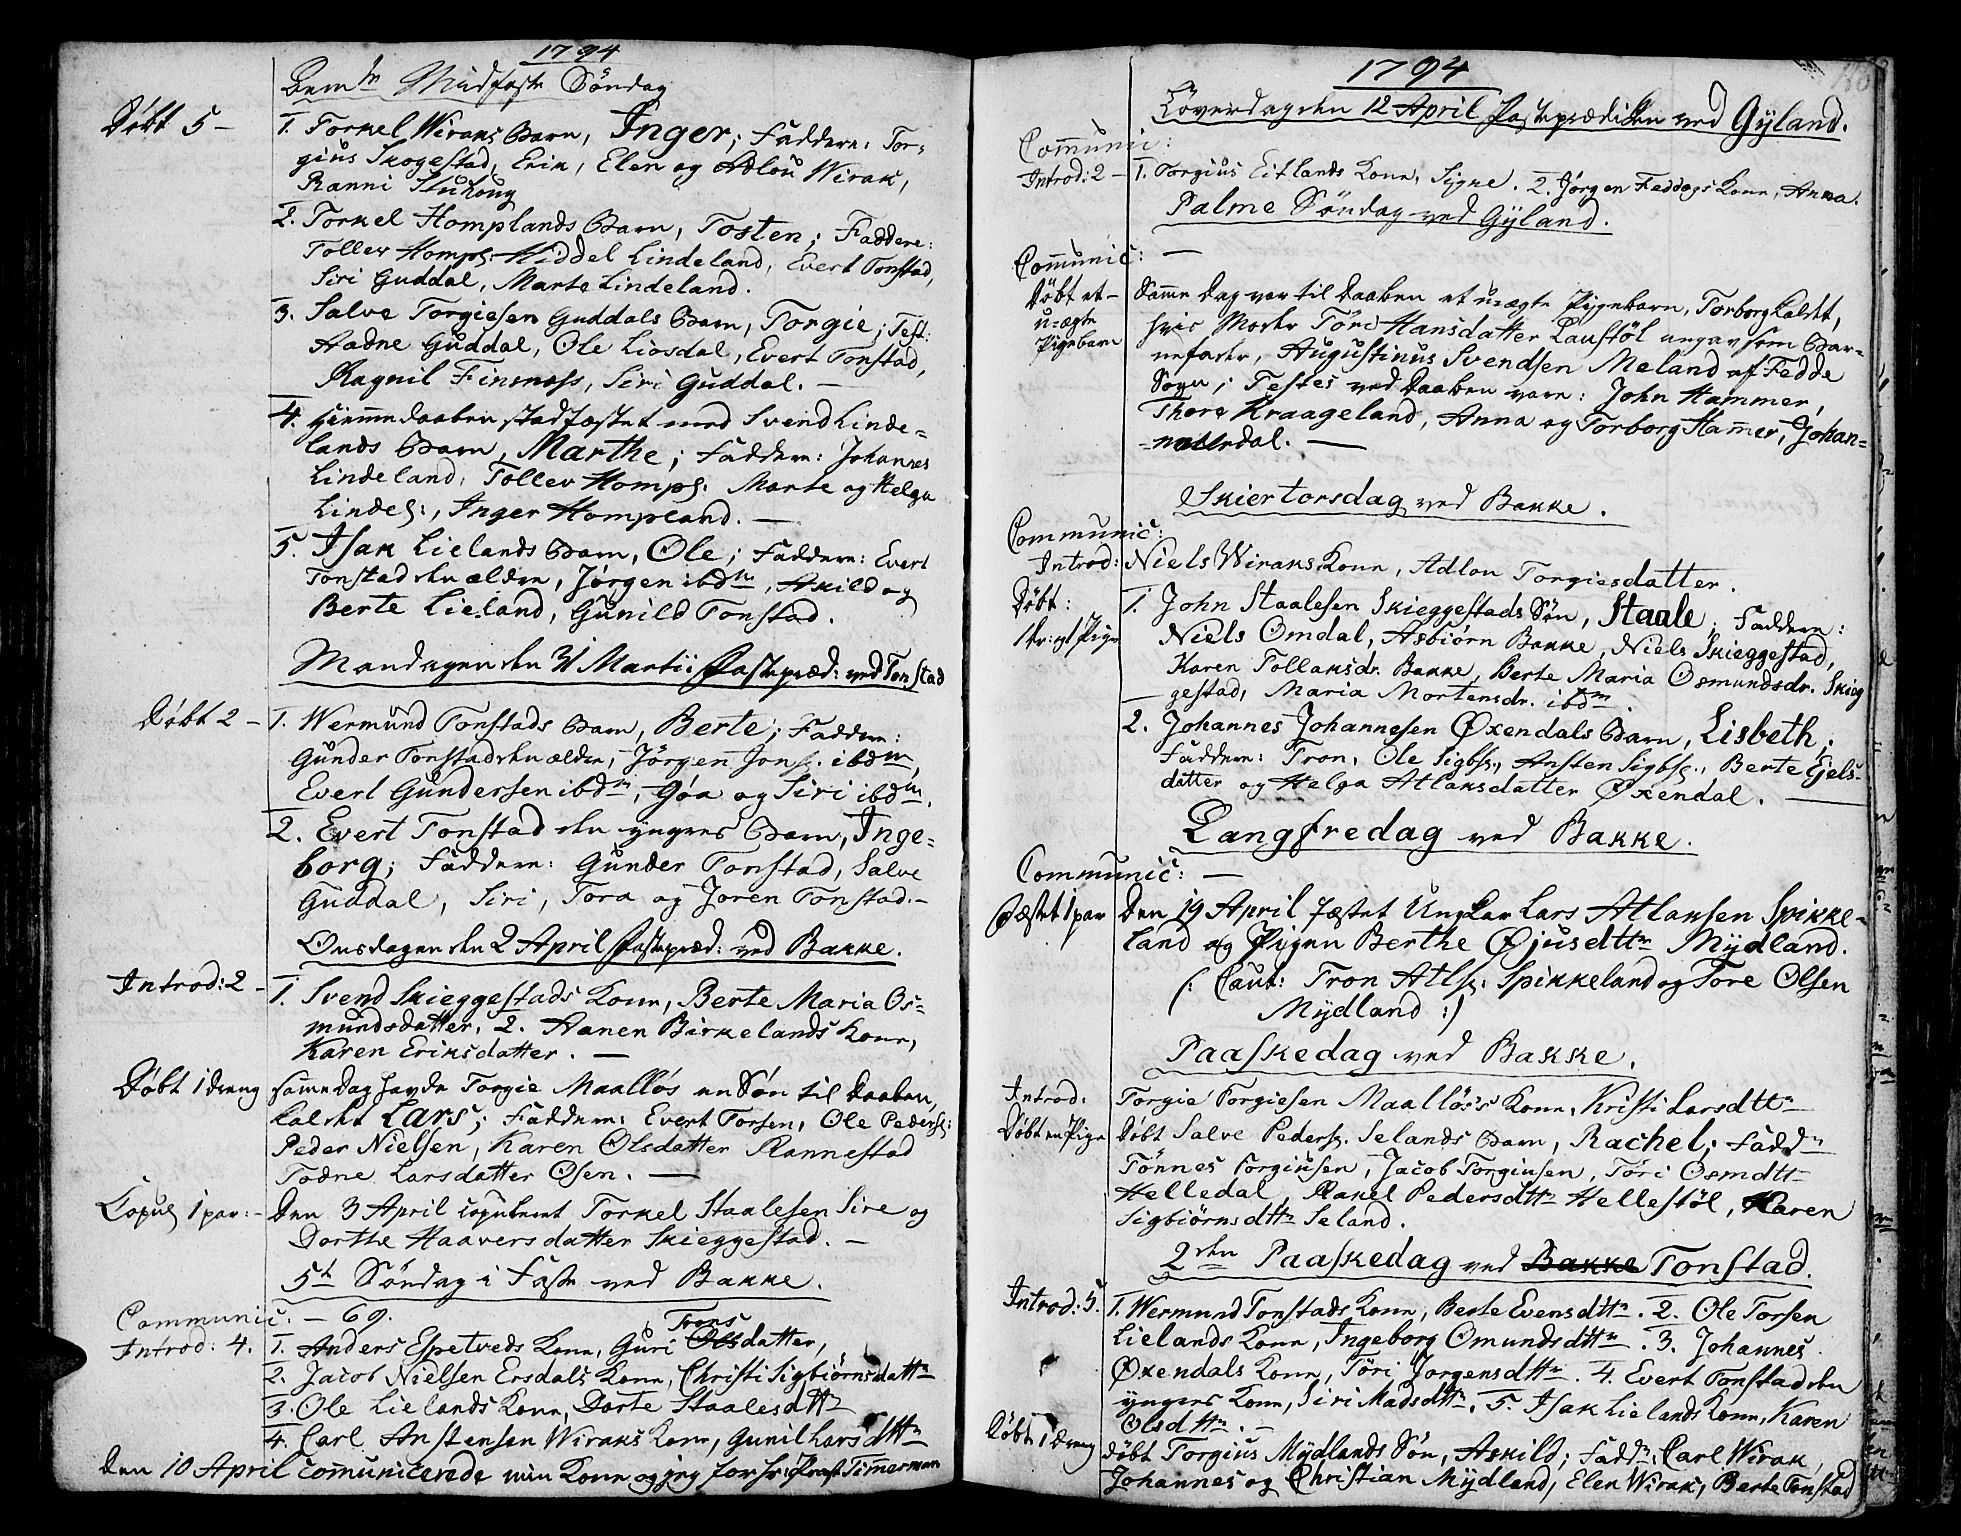 1794
Dom: Midfaste Söndag
Döbt 5 – 1. Torkel Wiraks Barn, Inger; Faddere: Tor-
gius Skogestad, Erik, Elen og Adlou Wirak,
Ranni Stuhoug
2. Torkel Homplands Barn, Tosten; Faddere:
Tollev Hompl: Hiddel Lindeland, Evert Tonstad,
Siri Guddal, Marte Lindeland.
3. Salve Torgiesen Guddals Barn, Torgie; Test:
Aadne Guddal, Ole Liosdal, Evert Tonstad,
Ragnil Finsnæss, Siri Guddal. –
4. Hiemmedaaben stadfæstet med Svend Linde-
lands Barn, Marthe; Faddere: Johannes
Lindeland, Tollev Hompl: Marte og Helga
Lindel:, Inger Hompland. –
5. Isak Lielands Barn, Ole; Faddere: Evert
Tonstad den ældre, Jörgen ibdm, Askild og
Berte Lieland, Gunild Tonstad.
Mandagen den 31 Martii Fastepræd: ved Tonstad
Döbt 2 – 1. Wermund Tonstads Barn, Berte; Faddere:
Gunder Tonstad den ældre, Jörgen Jons: ibdm,
Evert Gundersen ibdm, Göa og Siri ibdm.
2. Evert Tonstad den yngres Barn, Inge-
borg; Faddere: Gunder Tonstad, Salve
Guddal, Siri, Tora og Joren Tonstad. –
Onsdagen den 2 April Fastepræd: ved Bakke.
Introd: 2 – 1. Svend Skieggestads Kone, Berte Maria Os-
mundsdatter. 2. Aanen Birkelands Kone,
Karen Eriksdatter. –
Döbt 1 dreng Samme dag havde Torgie Maallös en Sön til Daaben,
kaldet Lars; Faddere: Evert Torsen, Ole Peders:
Peder Nielsen, Karen Olsdatter Rannestad
Todne Larsdatter Osen. –
Copul 1 par: – Den 3 April copuleret Torkel Staalesen Sire og
Dorthe Haaversdatter Skieggestad. –
5te Söndag i Faste ved Bakke.
Communic. – 69.
Introd: 4. 1. Anders Espetveds Kone, Guri Olsdatter, Trons
2. Jacob Nielsen Ersdals Kone, Christi Sigbiörnsdattr
3. Ole Lielands Kone, Dorte Staalesdttr
4. Carl Anstensen Wiraks Kone, Gunil Larsdttr
Den 10 April communicerede min Kone og jeg for hr: Probst Simmerman
1794
Löverdagen den 12 April Fasteprædiken ved Gyland.
Communic:
Introd: 2 – 1. Torgius Eitlands Kone, Signe. 2. Jörgen Feddogs Kone, Anna.
Palme Söndag ved Gyland.
Communic: –
Döbt et – Samme dag var til Daaben et uægte Pigebarn, Torborg kaldt,
uægte hvis Moder Töri Hansdatter Laustöl angav som Bar-
Pigebarn nefader, Augustinus Svendsen Meland af Fedde
Sogn; Testes ved Daaben vare: John Hammer,
Thore Kraageland, Anna og Torborg Hammer, Johan-
Skiertorsdag ved Bakke.
Communic:
Introd: Niels Wiraks Kone, Adlou Torgiesdatter.
Döbt: 1. John Staalesen Skieggestads Sön, Staale; Faddere:
1 dr: og 1 Pige Niels Omdal, Asbiörn Bakke, Niels Skieggestad,
Karen Tollaksdr. Bakke, Berte Maria Osmundsdr. Skieg
gestad, Maria Mortensdr. ibdm.
2. Johannes Johannesen Öxendals Barn, Lisbeth;
Faddere: Tron, Ole Sigbs:, Ansten Sigbs:, Berte Gjels-
datter og Helga Atlaksdatter Öxendal. –
Langfredag ved Bakke.
Communic: –
Fæstet 1 par Den 19 April fæstet Ungkar Lars Atlaksen Spikke-
land og Pigen Berthe Øjusdttr Mydland.
(: Caut: Tron Atls: Spikkeland og Tore Olsen
Mydland :)
Paaskedag ved Bakke.
Introd: Torgie Torgiesen Maallös's Kone, Kristi Larsdttr
Döbt en Pige Döbt Salve Peders: Selands Barn, Rachel; Faddr
Tönnes Torgiusen, Jacob Torgiusen, Töri Osmdttr
Helledal, Rakel Pedersdttr Hellestöl, Karen
Sigbiörnsdttr Seland.
2den Paaskedag ved Bakke Tonstad.
Introd: 5. 1. Wermund Tonstads Kone, Berte Evensdttr. 2. Ole Torsen
Lielands Kone, Ingeborg Omundsdttr. 3. Johannes
Öxendals Kone, Töri Jorgensdttr. 4. Evert Tonstad den
yngres Kone, Siri Madsdttr. 5. Isak Lielands Kone, Karen
Olsdttr. –
Döbt 1 dreng Döbt Torgius Mydlands Sön, Askild; Faddr, Carl Wirak,
Johannes og Christian Mydland, Elen Wirak, Berte Tonstad